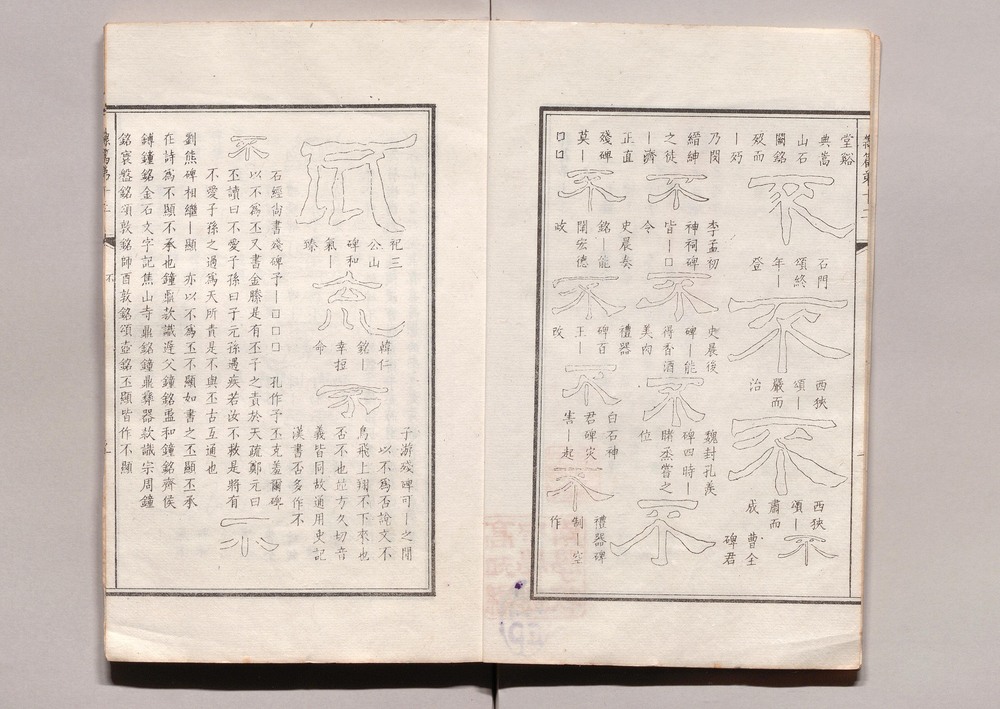 堂谿
典嵩
山石
闕銘
殁而
｜朽
不
石門
頌終
年｜
登
不
西狹
頌｜
嚴而
治
不
西狹
頌｜
肅而
成
不
曹全
碑君
乃閔
縉紳
之徒
｜濟
不
李孟初
神祠碑
皆｜口
令
不
史晨後
碑｜能
得香酒
美肉
不
魏封孔羨
碑四時｜
睹烝嘗之
位
不
正直
殘碑
莫｜
口口
不
史晨奏
銘｜能
闡宏德
政
不
禮器
碑百
王｜
改
不
白石神
君碑灾
害｜起
不
禮器碑
制｜空
作
不
祀三
公山
碑和
氣｜
臻
不
韓仁
銘｜
幸
命
不
子游殘碑可｜之間
以不為否說文不
鳥飛上翔不下來也
否不也竝方久切音
義皆同故通用史記
漢書否多作不
不
石經尚書殘碑予｜口口口 孔作予丕克羞爾碑
以不為丕又書金縢是有丕子之責於天疏鄭元曰
丕讀曰不愛子孫曰子元孫遇疾若汝不救是將有
不愛子孫之過為天所責是不與丕古互通也
不
劉熊碑相繼｜顯 亦以不為丕不顯如書之丕顯丕承
在詩為不顯不承也鐘鼎款識遲父鐘銘盄和鐘銘齊侯
鎛鐘銘金石文字記焦山寺鼎銘鐘鼎彝器款識宗周鐘
銘寰盤銘頌敦銘師酉敦銘頌壺銘丕顯皆作不顯
不